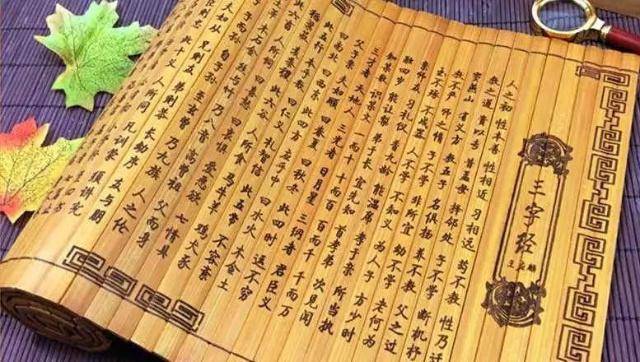 三字经
王应麟
人之初 性本善 性相近 习相远 苟不教 性乃迁
教之道 贵以专 昔孟母 择邻处 子不学 断机杼
窦燕山 有义方 教五子 名俱扬 养不教 父之过
教不严 师之惰 子不学 非所宜 幼不学 老何为
玉不琢 不成器 人不学 不知义 为人子 方少时
亲师友 习礼仪 香九龄 能温席 孝于亲 所当执
融四岁 能让梨 弟于长 宜先知 首孝弟 次见闻
知某数 识某文 一而十 十而百 百而千 千而万
三才者 天地人 三光者 日月星 三纲者 君臣义
父子亲 夫妇顺 曰春夏 曰秋冬 此四时 运不穷
曰南北 曰西东 此四方 应乎中 曰水火 木金土
此五行 本乎数 曰仁义 礼智信 此五常 不容紊
稻粱菽 麦黍稷 此六谷 人所食 马牛羊 鸡犬豕
此六畜 人所饲 曰喜怒 曰哀惧 爱恶欲 七情具
木石金 丝与竹 乃八音 高曾祖 父而身
自子孙 至玄曾 乃九族 人之伦
夫妇从 兄则友 弟则恭 长幼序 友与朋
此十义 人所同 凡训蒙 须讲究